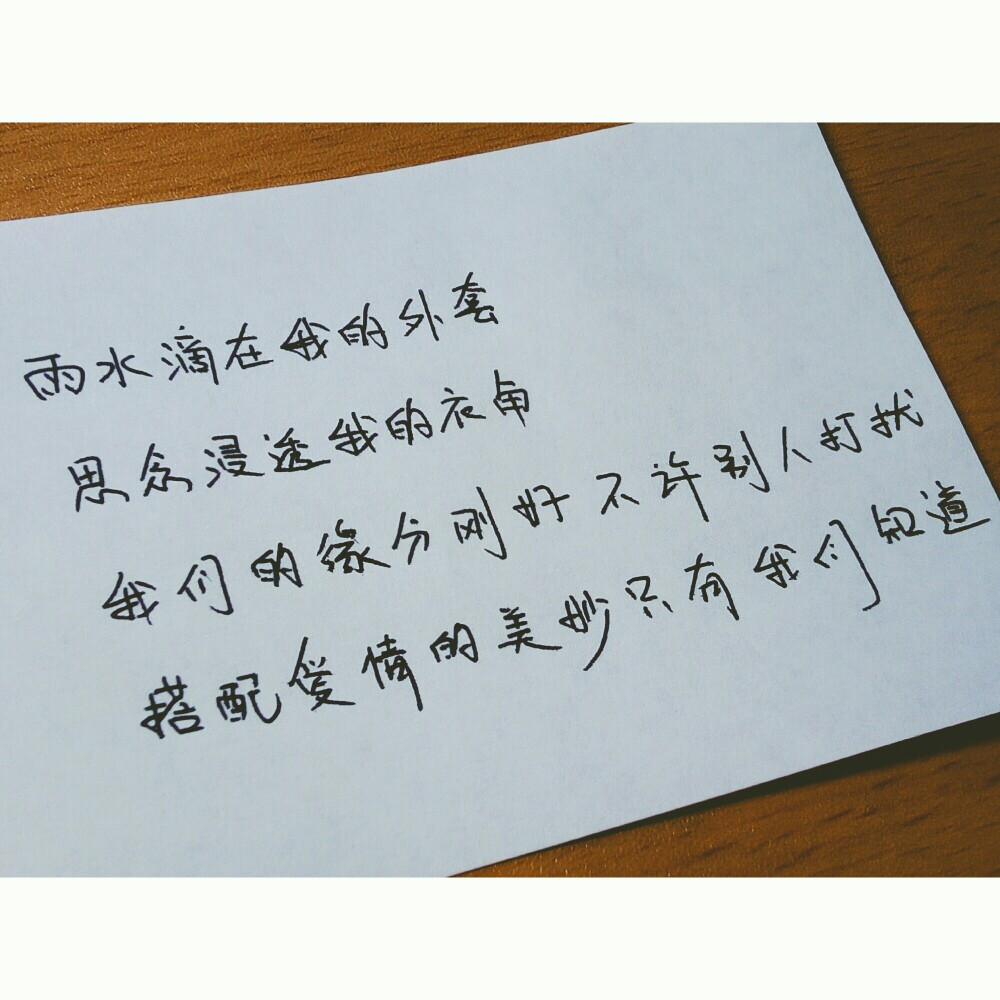 雨水滴在我的外套
思念浸透我的衣角
我们的缘分刚好不许别人打扰
搭配爱情的美妙只有我们知道